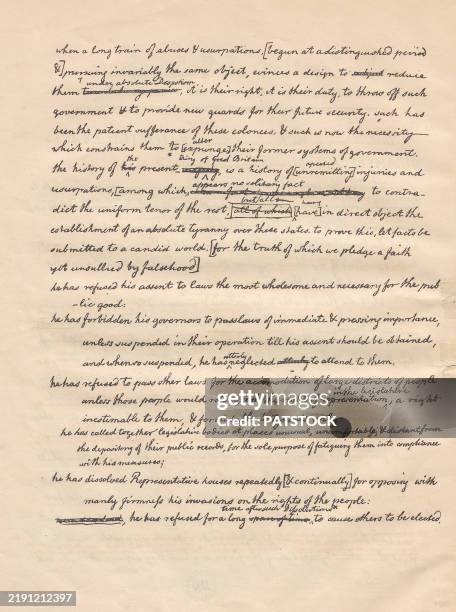 when a long train of abuses & usurpations, [begun at a distinguished period
&] pursuing invariably the same object, evinces a design to reduce
under absolute Despotism
them, it is their right, it is their duty, to throw off such
government & to provide new guards for their future security. such has
been the patient sufferance of these colonies, & such is now the necessity
which constrains them to [expunge] their former systems of government.
alter
the history of his present, is a history of [unremitting] injuries and
the King of Great Britain repeated
usurpations, [among which, to contra-
appears no solitary fact
dict the uniform tenor of the rest, [all of which] [have] in direct object the
but all have
establishment of an absolute tyranny over these states. to prove this, let facts be
submitted to a candid world. [for the truth of which we pledge a faith
yet unsullied by falsehood]
he has refused his assent to laws the most wholesome and necessary for the pub
-lic good:
he has forbidden his governors to pass laws of immediate & pressing importance,
unless suspended in their operation till his assent should be obtained,
and when so suspended, he has neglected utterly to attend to them.
utterly
he has refused to pass other laws for the accomodation of large districts of people
unless those people would
in the legislature
representation, a right
inestimable to them, & for
he has called together legislative bodies at places unusual, uncomfortable, & distant from
the depository of their public records, for the sole purpose of fatiguing them into compliance
with his measures;
he has dissolved Representative houses repeatedly [& continually] for opposing with
manly firmness his invasions on the rights of the people:
time after such Dissolutions
he has refused for a long space of time, to cause others to be elected,
gettyimages
Credit: PATSTOCK
2191212397